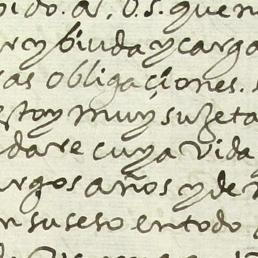 pido. a. V. S. que en
rcy biuda y carga
as obligaçiones.
stoy muy sugeta
dare cuya vida
argos años y de
n suseso en todo